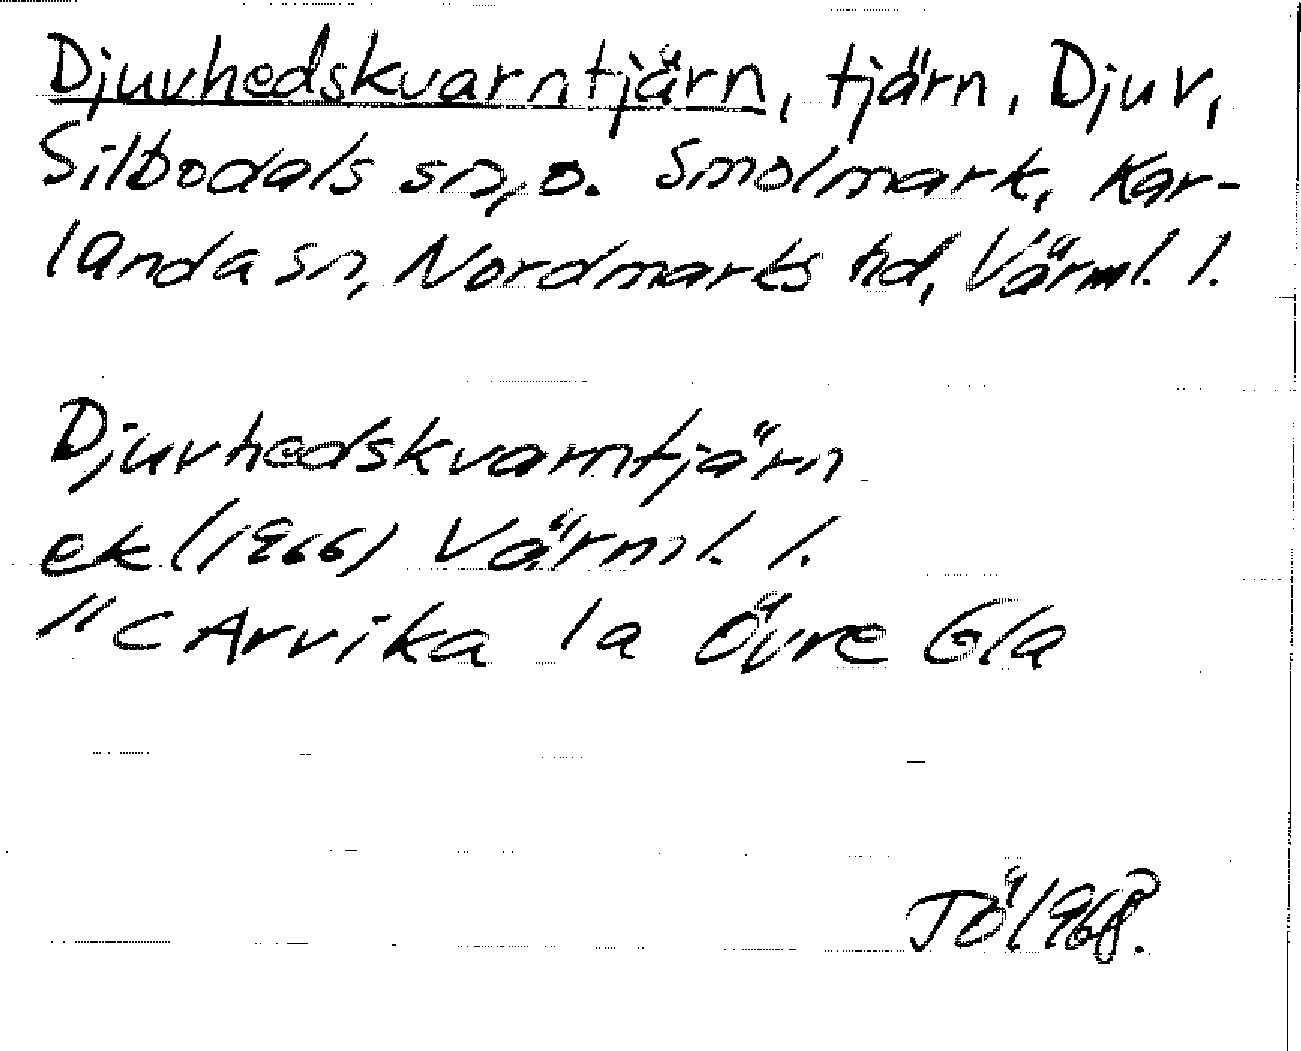 Djuvhedskvarntjärn, tjärn, Djuv,
Silbodals sn, o. Smolmark, Kar-
landa sn, Nordmarks hd, Värml. l.
Djuvhedskvarntjärn
ek (1966) Värml. l.
" C Arvika 1a Övre Gla
TÖ 1968.